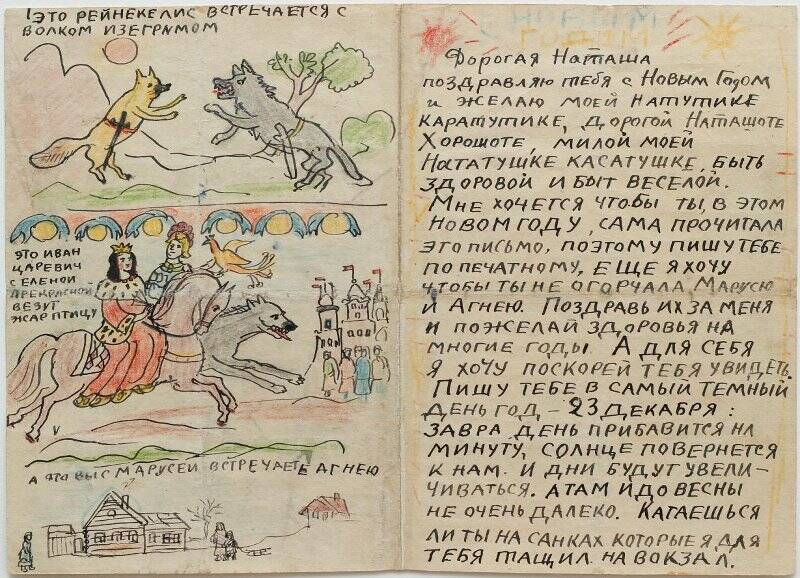 ! ЭТО РЕЙНЕКЕЛИС ВСТРЕЧАЕТСЯ С
ВОЛКОМ ИЗЕГРИМОМ
ЭТО ИВАН
ЦАРЕВИЧ
С ЕЛЕНОЙ
ПРЕКРАСНОЙ
ВЕЗУТ
ЖАР ПТИЦУ
А ЭТО ВЫ С МАРУСЕЙ ВСТРЕЧАЕТЕ АГНЕЮ
С НОВЫМ
ГОДОМ
Дорогая Наташа
поздравляю тебя с Новым Годом
и желаю моей Натутике
Каратутике, дорогой Наташоте
Хорошоте, милой моей
Нататушке касатушке, быть
здоровой и быт веселой.
Мне хочется чтобы ты, в этом
новом году, сама прочитала
это письмо, поэтому пишу тебе
по печатному, еще я хочу
чтобы ты не огорчала Марусю
и Агнею. Поздравь их за меня
и пожелай здоровья на
многие годы. А для себя
я хочу поскорей тебя увидеть.
Пишу тебе в самый темный
день год – 23 декабря:
завра день прибавится на
минуту, солнце повернется
к нам. и дни будут увели–
чиваться. а там и до весны
не очень далеко. Катаешься
ли ты на санках которые я для
тебя тащил на вокзал.